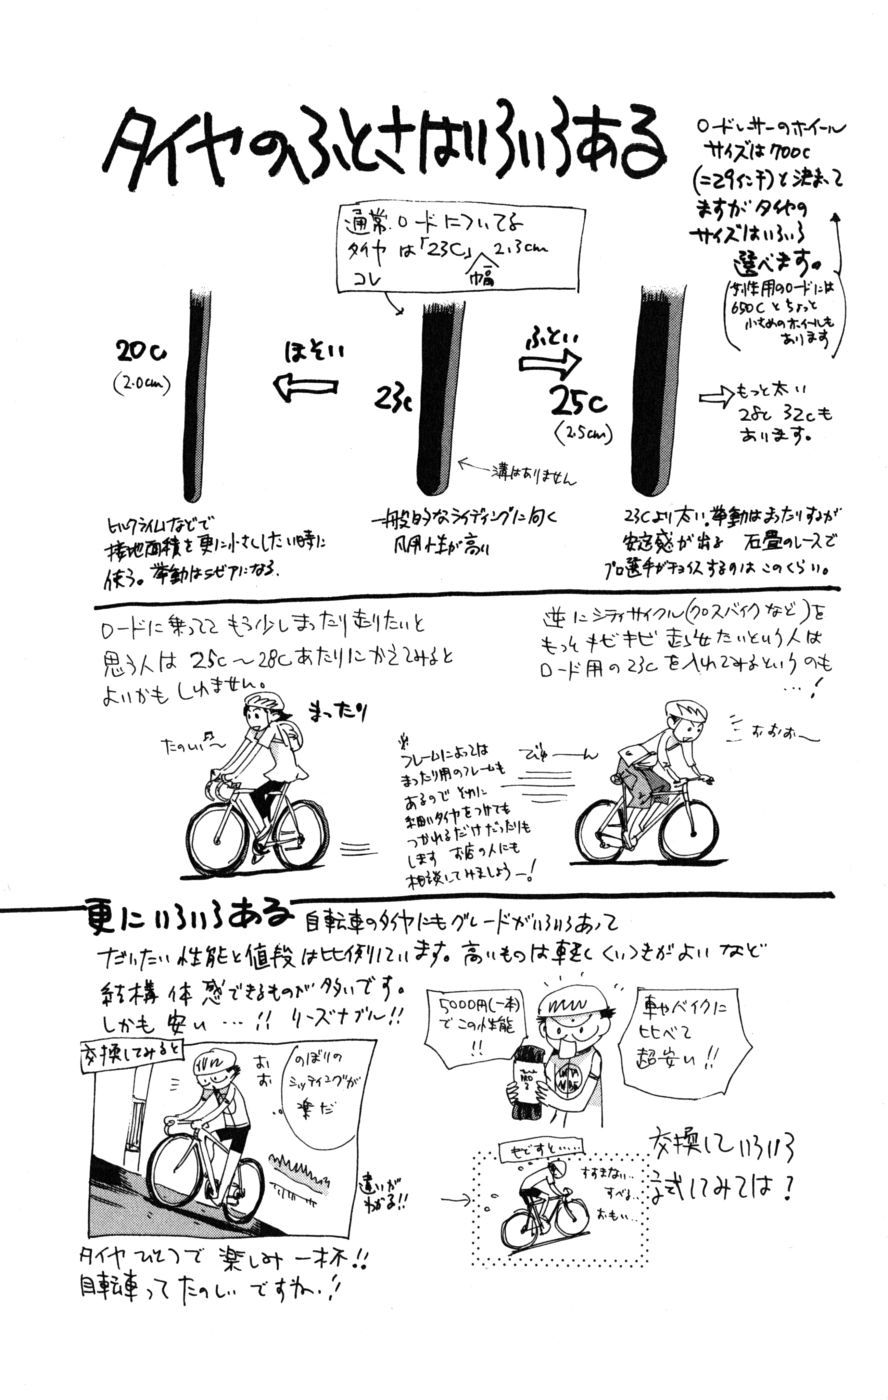 タイヤのふとさはいろいろある
ロードレーサーのホイール
サイズは700c
(=29インチ)と決まって
ますがタイヤの
サイズはいろいろ
選べます。
(女性用のロードには
650Cとちょっと
小さめのホイールも
あります)
通常ロードについてる
タイヤは「23C」 2.3cm
コレ 幅
20c
(2.0cm)
ほそい
23c
ふとい
25c
(2.5cm)
もっと太い
28c 32cも
あります。
溝はありません
ヒルクライムなどで
接地面積を更に小さくしたい時に
使う。挙動はシビアになる.
一般的なライディングに向く
汎用性が高い
23cより太い。挙動はまったりするが
安定感が出る 石畳のレースで
プロ選手がチョイスするのはこのくらい。
ロードに乗ってて もう少しまったり走りたいと
思う人は 25c〜28cあたりにかえてみると
よいかもしれません。
逆にシティサイクル(クロスバイクなど)を
もっとキビキビ走らせたいという人は
ロード用の23cを入れてみるというのも
…!
たのしい〜
まったり
※
フレームによっては
まったり用のフレームも
あるので それに
細いタイヤをつけても
つかれるだけだったりも
します お店の人にも
相談してみましょう―!
びゅーん
おおお〜
更にいろいろある 自転車のタイヤにもグレードがいろいろあって
だいたい性能と値段は比例しています。高いものは軽くくいつきがよいなど
結構体感できるものが多いです。
しかも安い…!! リーズナブル!!
5000円(一本)
でこの性能
!!
車やバイクに
比べて
超安い!!
交換してみると
おお
のぼりの
シッティングが
楽だ
違いが
わかる!!
もどすと……
すすまない…
すべる…
おもい…
交換していろいろ
試してみては?
タイヤひとつで楽しみ一杯!!
自転車ってたのしいですね.!!